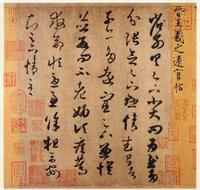 晉王羲之遠宦帖
省別具足下小大問為慰多
分張念足下懸情武昌
諸子亦多遠宦足下兼懷
並數問不老婦頃疾篤
救命恒憂慮餘粗平安
知足下情至